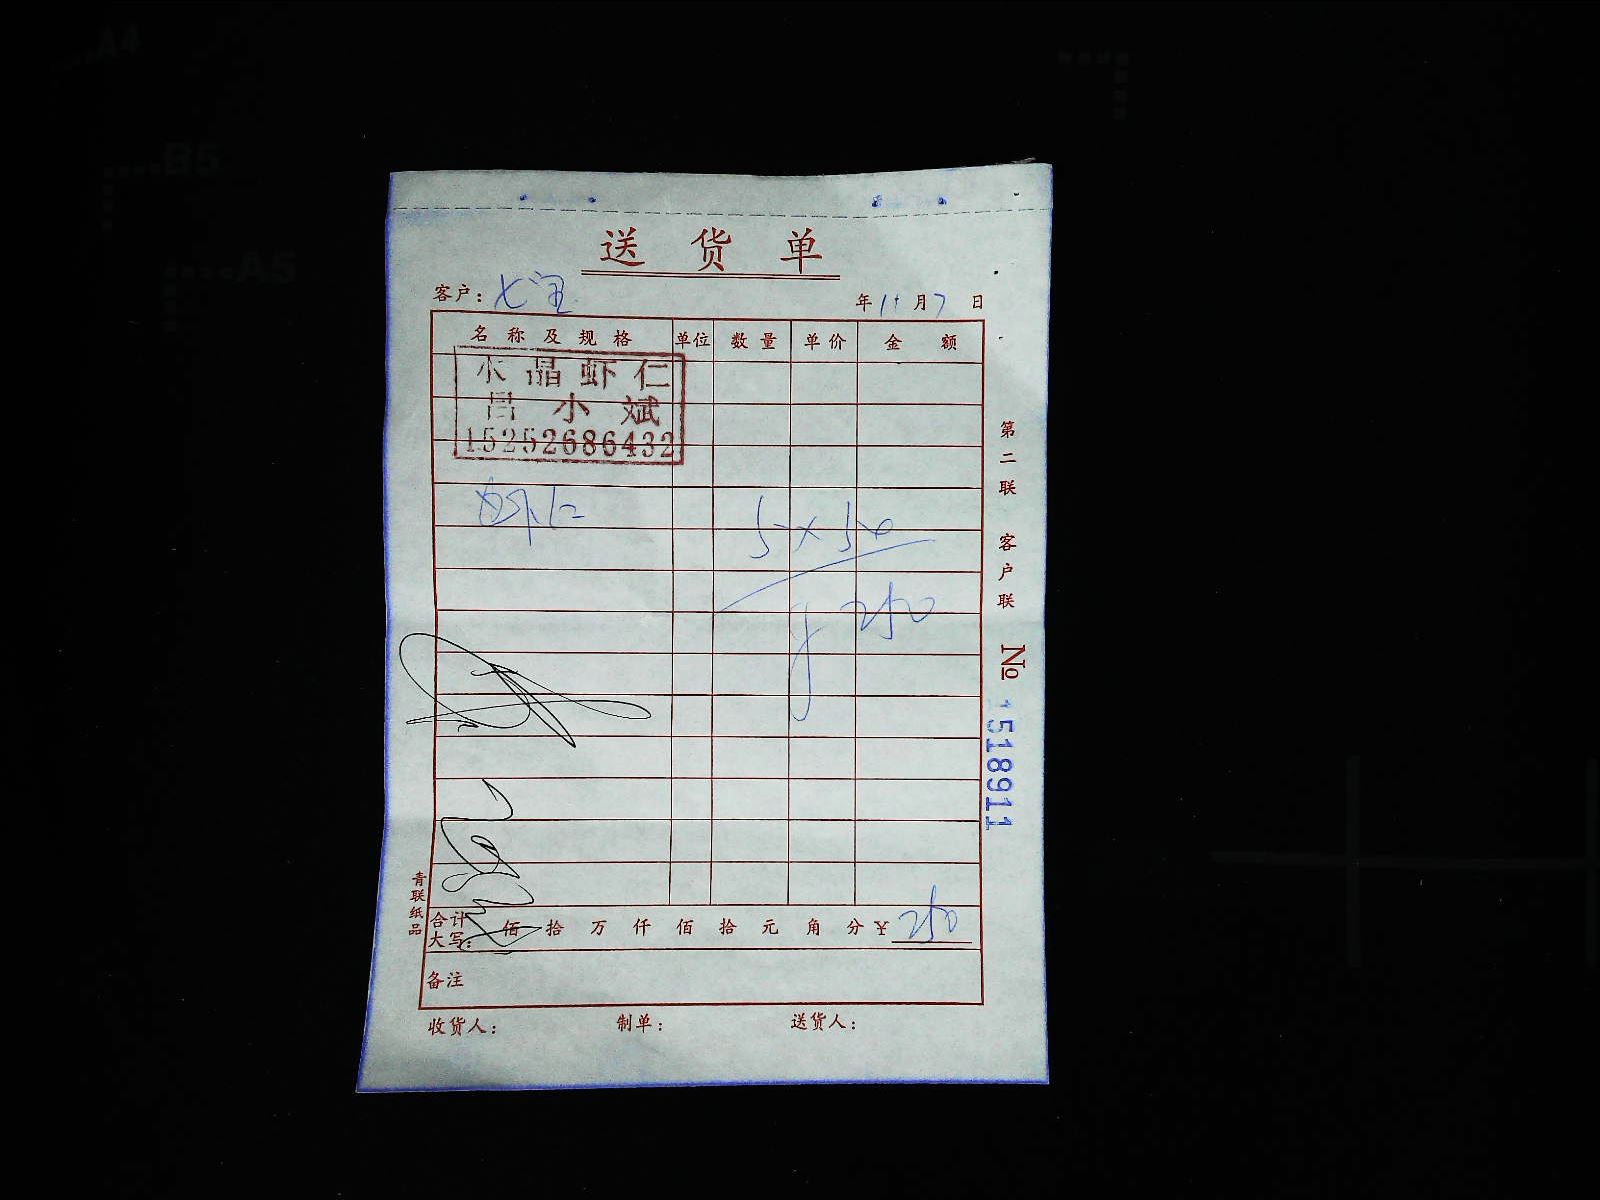 送货单
客户：
年 11 月 7 日
名称及规格 单位 数量 单价 金额
水晶虾仁
吕小斌
15252686432
虾仁 5×50
¥250
第二联 客户联
№ 1518911
青联纸品
合计大写： 佰 拾 万 仟 佰 拾 元 角 分 ¥ 250
备注
收货人： 制单： 送货人：
A4
B5
A5